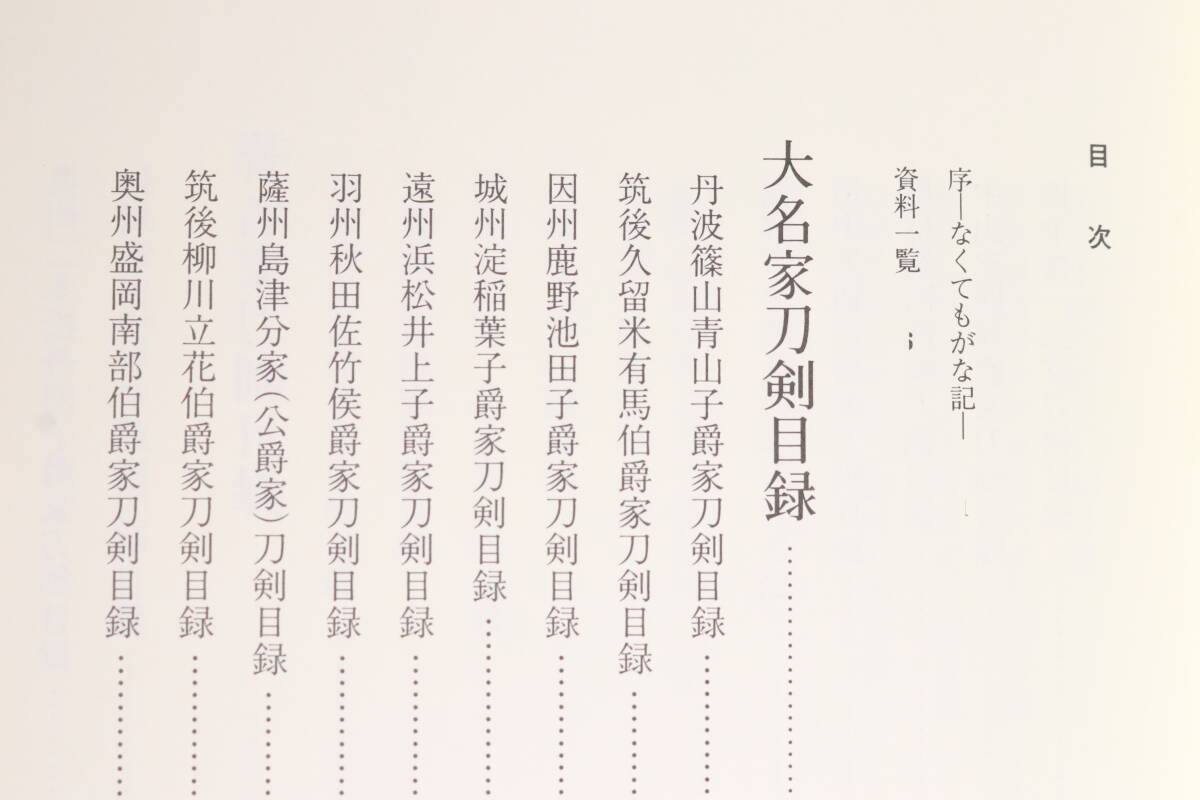 目次
序―なくてもがな記―
資料一覧
大名家刀剣目録
丹波篠山青山子爵家刀剣目録
筑後久留米有馬伯爵家刀剣目録
因州鹿野池田子爵家刀剣目録
城州淀稲葉子爵家刀剣目録
遠州浜松井上子爵家刀剣目録
羽州秋田佐竹侯爵家刀剣目録
薩州島津分家（公爵家）刀剣目録
筑後柳川立花伯爵家刀剣目録
奥州盛岡南部伯爵家刀剣目録